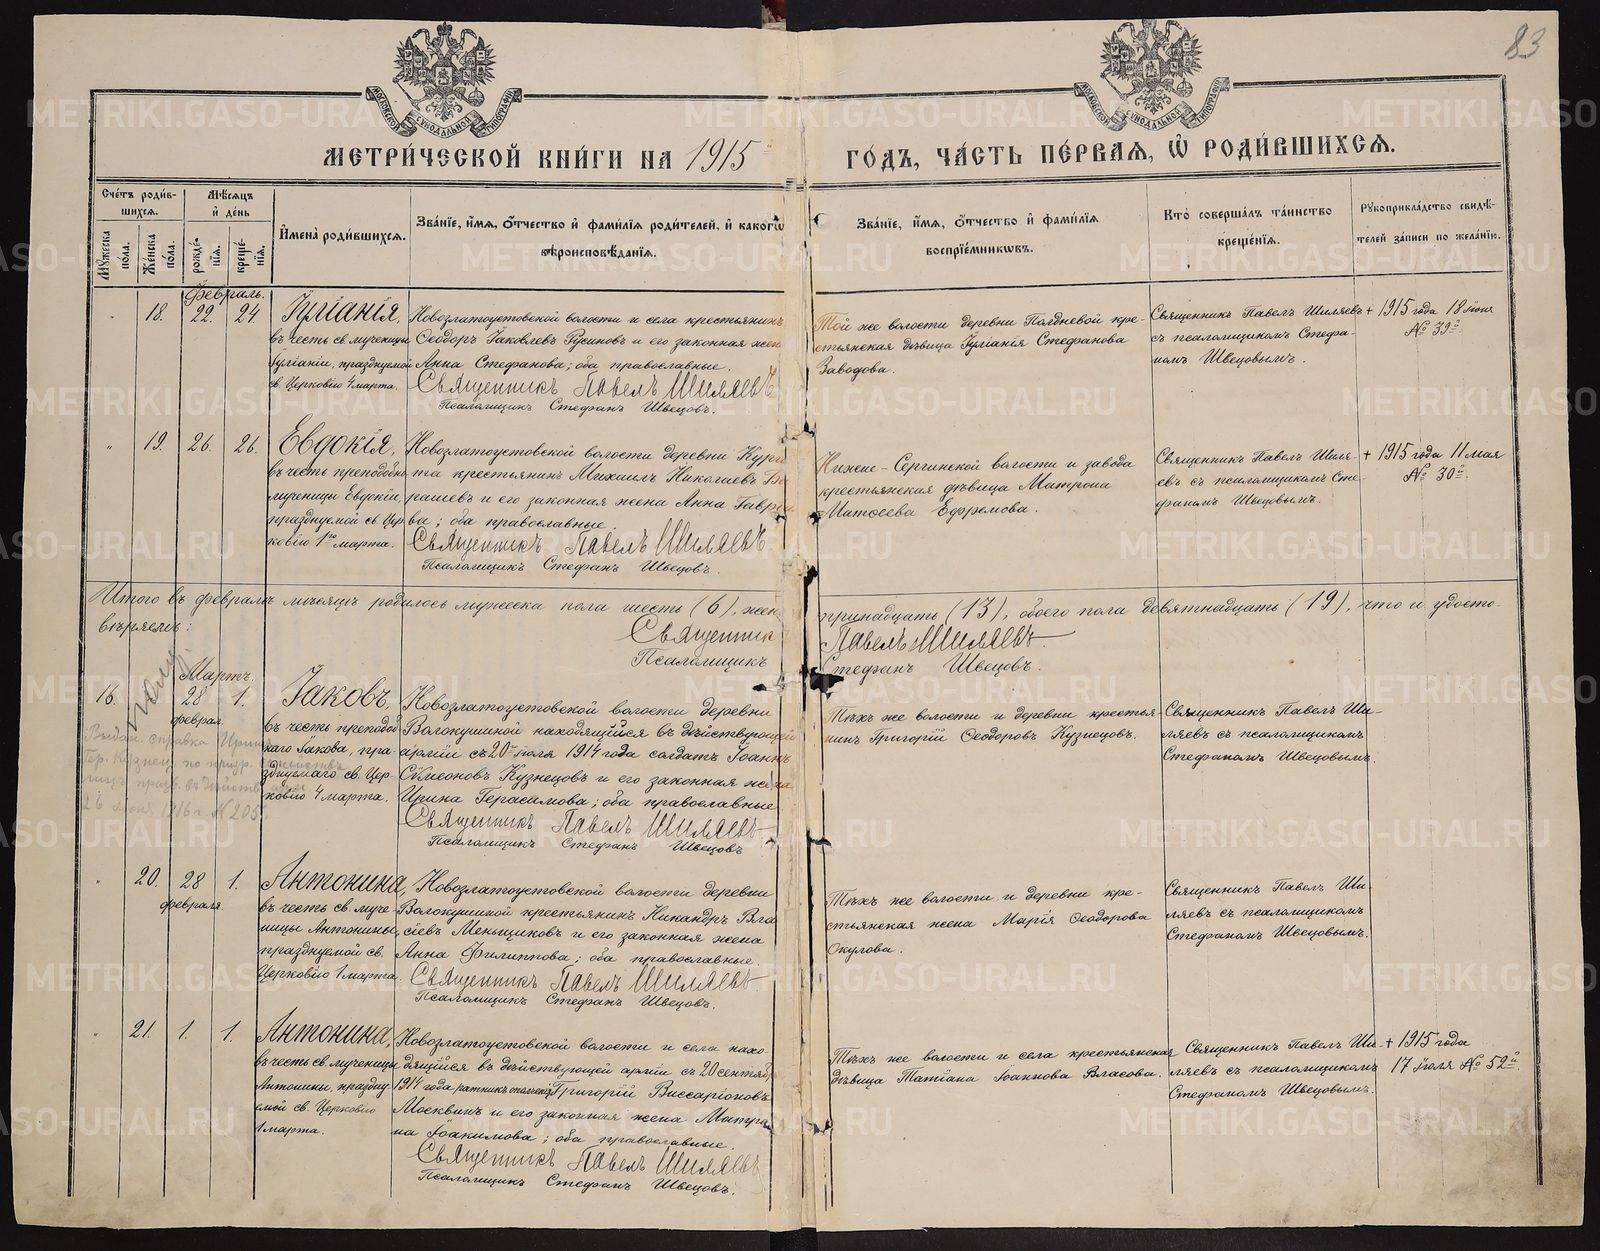 83
МЕТРИ́ЧЕСКОЙ КНИ́ГИ НА 1915 ГО́ДЪ, ЧА́СТЬ ПЕ́РВАЯ, Ѡ РОДИ́ВШИХСЯ.
Сче́тъ роди́вшихся.
Мѣ́сяцъ и де́нь
Мꙋ́жеска по́ла.
Же́нска по́ла.
рожде́нїя.
креще́нїя.
Имена̀ роди́вшихся.
Зва́нїе, и́мя, о́тчество и фами́лїя роди́телей, и како́гѡ вѣроисповѣ́данїя.
Зва́нїе, и́мя, о́тчество и фами́лїя воспрїе́мникѡвъ.
Кто̀ соверша́лъ та́инство креще́нїя.
Рꙋкоприкла́дство свидѣ́телей за́писи по жела́нїю.
Февраль.
18. 22. 24.
Іуліанія,
въ честь св. мученицы
Іуліаніи, празднуемой
св. Церковію 4 марта.
Новозлатоустовской волости и села крестьянинъ
Ѳеодоръ Іаковлевъ Русиновъ и его законная жен
Анна Стефанова; оба православные.
Священникъ Павелъ Шиляевъ
Псаломщикъ Стефанъ Швецовъ.
Той же волости деревни Полдневой кре-
стьянская дѣвица Іуліанія Стефанова
Заводова.
Священникъ Павелъ Шиляевъ
съ псаломщикомъ Стефа-
номъ Швецовымъ.
+ 1915 года 18 іюня
№ 39й
19. 26. 26.
Евдокія,
въ честь преподобно
мученицы Евдокіи,
празднуемой св. Цер
ковію 1го марта.
Новозлатоустовской волости деревни Курга
та крестьянинъ Михаилъ Николаевъ
рашевъ и его законная жена Анна Гаври
ва; оба православные.
Священникъ Павелъ Шиляевъ.
Псаломщикъ Стефанъ Швецовъ.
Нижне-Сергинской волости и завода
крестьянская дѣвица Матрона
Матѳеева Ефремова.
Священникъ Павелъ Шиля-
евъ съ псаломщикомъ Сте-
фаномъ Швецовымъ.
+ 1915 года 11 мая
№ 30й.
Итого въ февралѣ мѣсяцѣ родилось мужеска пола шесть (6), жен тринадцать (13), обоего пола девятнадцать (19), что и удосто-
вѣряемъ:
Священникъ Павелъ Шиляевъ
Псаломщикъ Стефанъ Швецовъ.
Мартъ.
16. 28 1.
феврал.
Выдан. справка Ирин
Гер. Кузнец. по призр. семейств
1916 г. № 205.
Іаковъ,
въ честь преподоб
наго Іакова, пра-
зднуемаго св. Цер-
ковію 4 марта.
Новозлатоустовской волости деревни
Волокушиной находящійся въ дѣйствующей
арміи съ 20 іюля 1914 года солдатъ Іоаннъ
Сѵмеоновъ Кузнецовъ и его законная жена
Ирина Герасимова; оба православные
Священникъ Павелъ Шиляевъ
Псаломщикъ Стефанъ Швецовъ
Тѣхъ же волости и деревни крестья-
нинъ Григорій Ѳеодоровъ Кузнецовъ.
Священникъ Павелъ Ши-
ляевъ съ псаломщикомъ
Стефаномъ Швецовымъ.
20. 28 1.
февраля.
Антонина,
въ честь св. муче
ницы Антонины,
празднуемой св.
Церковію 1 марта.
Новозлатоустовской волости деревни
Волокушиной крестьянинъ Никандръ Вла
сіевъ Меньщиковъ и его законная жена
Анна Филиппова; оба православные.
Священникъ Павелъ Шиляевъ.
Псаломщикъ Стефанъ Швецовъ.
Тѣхъ же волости и деревни кре-
стьянская жена Марія Ѳеодорова
Окулова.
Священникъ Павелъ Ши-
ляевъ съ псаломщикомъ
Стефаномъ Швецовымъ.
21. 1. 1.
Антонина,
въ честь св. мученицы
Антонины, праздну
емой св. Церковію
1 марта.
Новозлатоустовской волости и села нахо-
дящійся въ дѣйствующей арміи съ 20 сентяб
1914 года ратникъ ополчен. Григорій Виссаріоновъ
Москвинъ и его законная жена Матро
на Іоакимова; оба православные.
Священникъ Павелъ Шиляевъ
Псаломщикъ Стефанъ Швецовъ.
Тѣхъ же волости и села крестьянская
дѣвица Татіана Іоаннова Власова.
Священникъ Павелъ Ши-
ляевъ съ псаломщикомъ
Стефаномъ Швецовымъ.
+ 1915 года
17 іюля № 52й.
METRIKI.GASO-URAL.RU